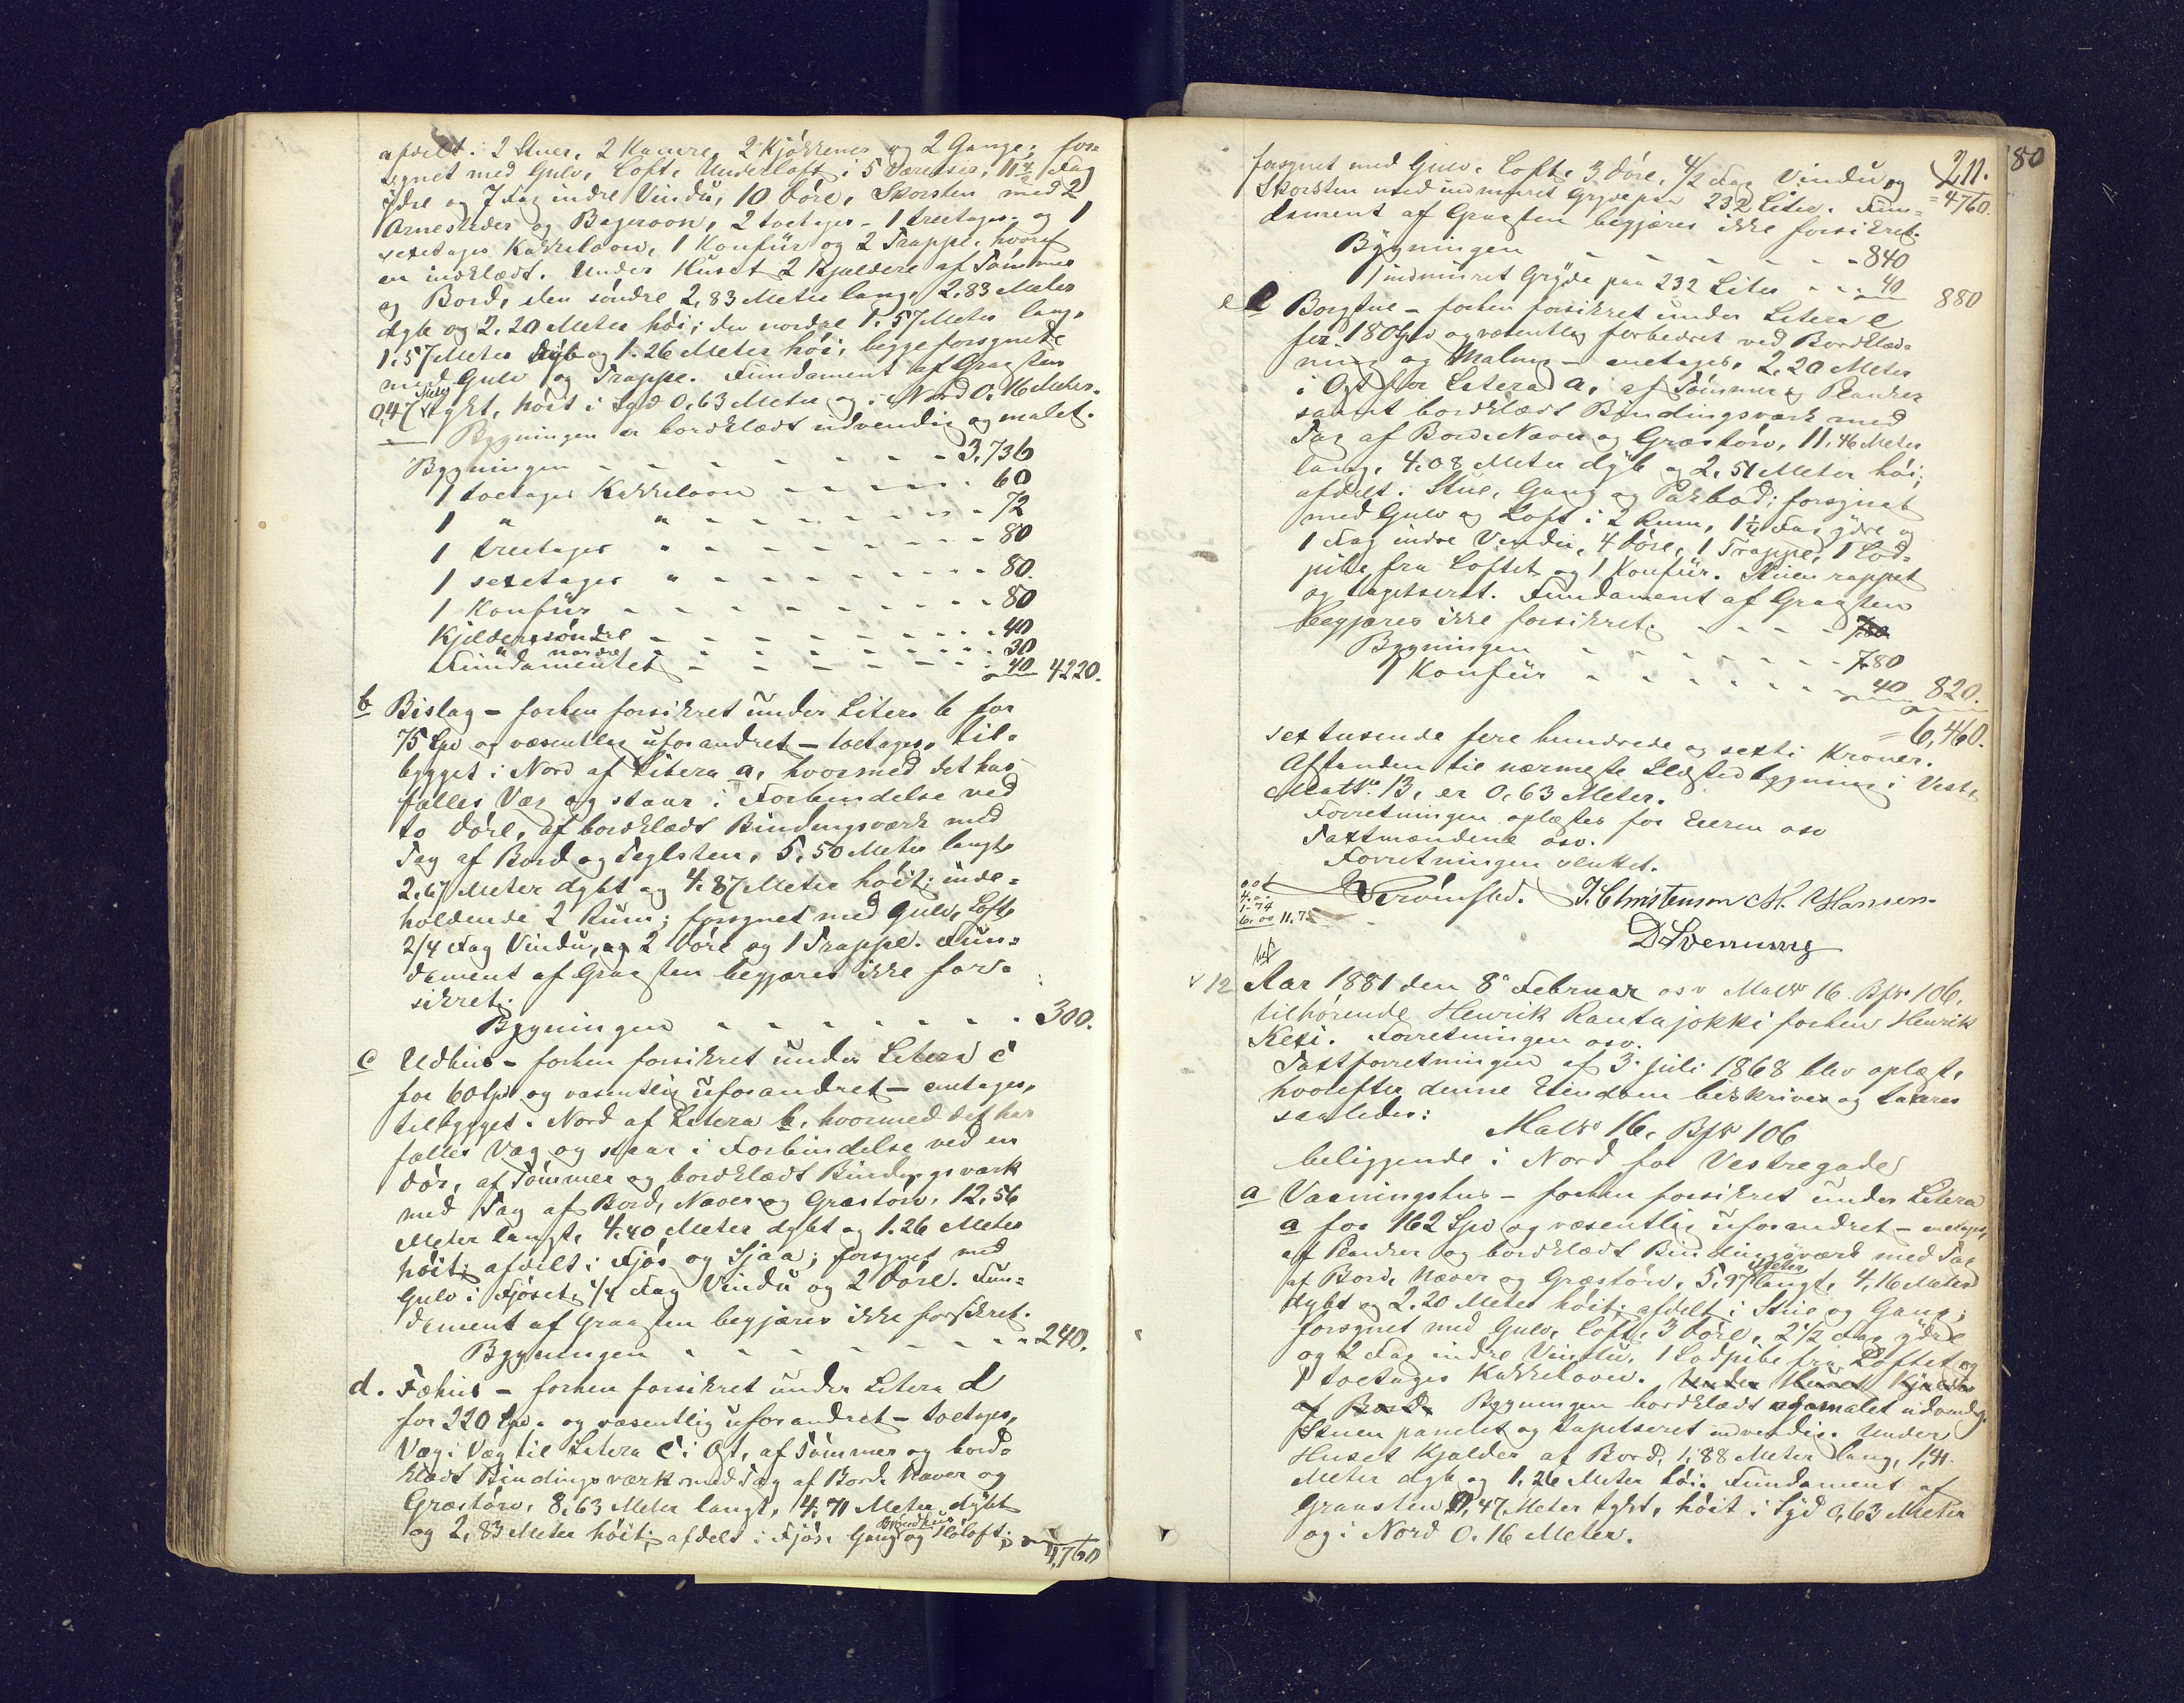 afdelt i 2 Stuer, 2 Kamre, 2 Kjøkkener og 2 Gange; for-
synet med Gulv, Loft, Underloft i 5 Værelser, 11 Fag
ÿdre og 7 Fag indre Vindu, 10 Døre, Skorsten med 2
Arnesteder og Bagerovn, 2 toetages - 1 treetages- og 1
sexetages Kakkelovn, 1 Konfür og 2 Trappe, hvoraf
en indklædt. Under Huset 2 Kjældere af Tømmer
og Bord, den søndre 2,83 Meter lang, 2,83 Meter
dyb og 2,20 Meter høi; den nordre 1,57 Meter lang,
1,57 Meter dyb og 1,26 Meter høi, begge forsynede
med Gulv og Trappe. Fundament af Graasten
0,47 Meter tykt, høit i Syd 0,63 Meter og i Nord 0,16 Meter.
Bygningen er bordklædt udvendig og malet.
Bygningen - - - - - - - 3,736
1 toetages Kakkelovn - - - - - 60
1 " " - - - - - - - 72
1 treetages " - - - - - - - 80
1 sexetages " - - - - - - - 80.
1 Konfür - - - - - - - - - 80
Kjelderen søndre - - - - - - - 40
" nordre - - - - - - - 30
Fundamentet - - - - - - - 40 4220.
b Bislag - forhen forsikret under Litera b for
75 Spd og væsentlig uforandret - toetages, til-
bygget i Nord af Litera a, hvormed det har
fælles Væg og staar i Forbindelse ved
to Døre, af bordklædt Bindingsværk med
Tag af Bord og Teglsten, 5,50 Meter langt,
2,67 Meter dybt og 4,87 Meter høit; inde-
holdende 2 Rum; forsynet med Gulv, Loft,
2/4 Fag Vindu, og 2 Døre og 1 Trappe. Fun-
dament af Graasten begjæres ikke for-
sikret.
Bygningen - - - - - - - 300.
c Udhus - forhen forsikret under Litera c
for 60 Spd og væsentlig uforandret - enetages,
tilbygget i Nord af Litera b, hvormed det har
fælles Væg og staar i Forbindelse ved en
Dør, af Tømmer og bordklædt Bindingsværk
med Tag af Bord, Næver og Græstørv, 12,56
Meter langt, 4,40 Meter dybt og 1,26 Meter
høit; afdelt i Fjøs og Sjaa; forsynet med
Gulv i Fjøset, 1/4 Fag Vindu og 2 Døre. Fun-
dament af Graasten begjæres ikke forsikret.
Bygningen - - - - - - - 240.
d. Fæhus - forhen forsikret under Litera d
for 220 Spd. og væsentlig uforandret - toetages,
Væg i Væg til Litera c i Øst, af Tømmer og bord-
klædt Bindingsværk med Tag af Bord, Næver og
Græstørv, 8,63 Meter langt, 4,71 Meter dybt
og 2,83 Meter høit; afdelt i Fjøs, Gang, Brændhus og Høloft;
4,760
80
211.
forsynet med Gulv, Loft, 3 Døre, 4/2 Fag Vindu og = 4760.
Skorsten med indmuret Gryde paa 232 Liter. Fun-
dament af Graasten begjæres ikke forsikret.
Bÿgningen - - - - - - - 840
1 indmuret Grÿde paa 232 Liter - - 40 880
e Borgstue - forhen forsikret under Litera e
for 180 Spd og væsentlig forbedret ved Bordklæd-
ning og Maling - enetages, 2,20 Meter
i Øst for Litera a, af Tømmer og Planker
samt bordklædt Bindingsværk med
Tag af Bord, Næver og Græstørv, 11,46 Meter
lang, 4,08 Meter dÿb og 2,51 Meter høi;
afdelt i Stue, Gang og Pakbod; forsynet
med Gulv og Loft i 2 Rum, 1 1/4 Fag ÿdre og
1 Fag indre Vindu, 4 Døre, 1 Trappe, 1 Lod-
pibe fra Loftet og 1 Konfür. Stuen rappet
og tapetseret. Fundament af Graasten
begjæres ikke forsikret.
Bygningen - - - - - - - 780
1 Konfür - - - - - - - 40 820.
= 6,460.
sextusende fire hundrede og sexti Kroner.
Afstanden til nærmeste Ildsted bygning i Vest,
Mattr 13, er 0,63 Meter.
Forretningen oplæstes for Eieren osv
Taxtmændene osv.
Forretningen sluttet.
Strömsted. J. Christensen M. Hansen.
D Svenning
12 Aar 1881 den 8de Februar osv Matr 16. Bfr 106,
tilhørende Henrik Rantajokki forhen Henrik
Kexi. Forretningen osv.
Taxtforretningen af 3. juli 1868 blev oplæst,
hvorefter denne Eiendom beskrives og taxeres
saaledes:
Matr 16, Bfr 106
beliggende i Nord for Vestregade
a Vaaningshus - forhen forsikret under Litera
a for 162 Spd og væsentlig uforandret - enetages,
af Planker og bordklædt Bindingsværk med Tag
af Bord, Næver og Græstørv, 5,97 Meter langt, 4,16 Meter
dybt og 2,20 Meter høit; afdelt i Stue og Gang;
forsynet med Gulv, Loft, 3 Døre, 2 1/2 Fag ÿdre
og 2 Fag indre Vindu, 1 Lodpibe fra Loftet og
1 toetages Kakkelovn. Under Huset Kjælder
af Bord. Bygningen bordklædt og malet udvendig.
Stuen panelet og tapetseret indvendig. Under
Huset Kjælder af Bord, 1,88 Meter lang, 1,41
Meter dyb og 1,26 Meter høi. Fundament af
Graasten 0,47 Meter tykt, høit i Syd 0,63 Meter
og i Nord 0,16 Meter.